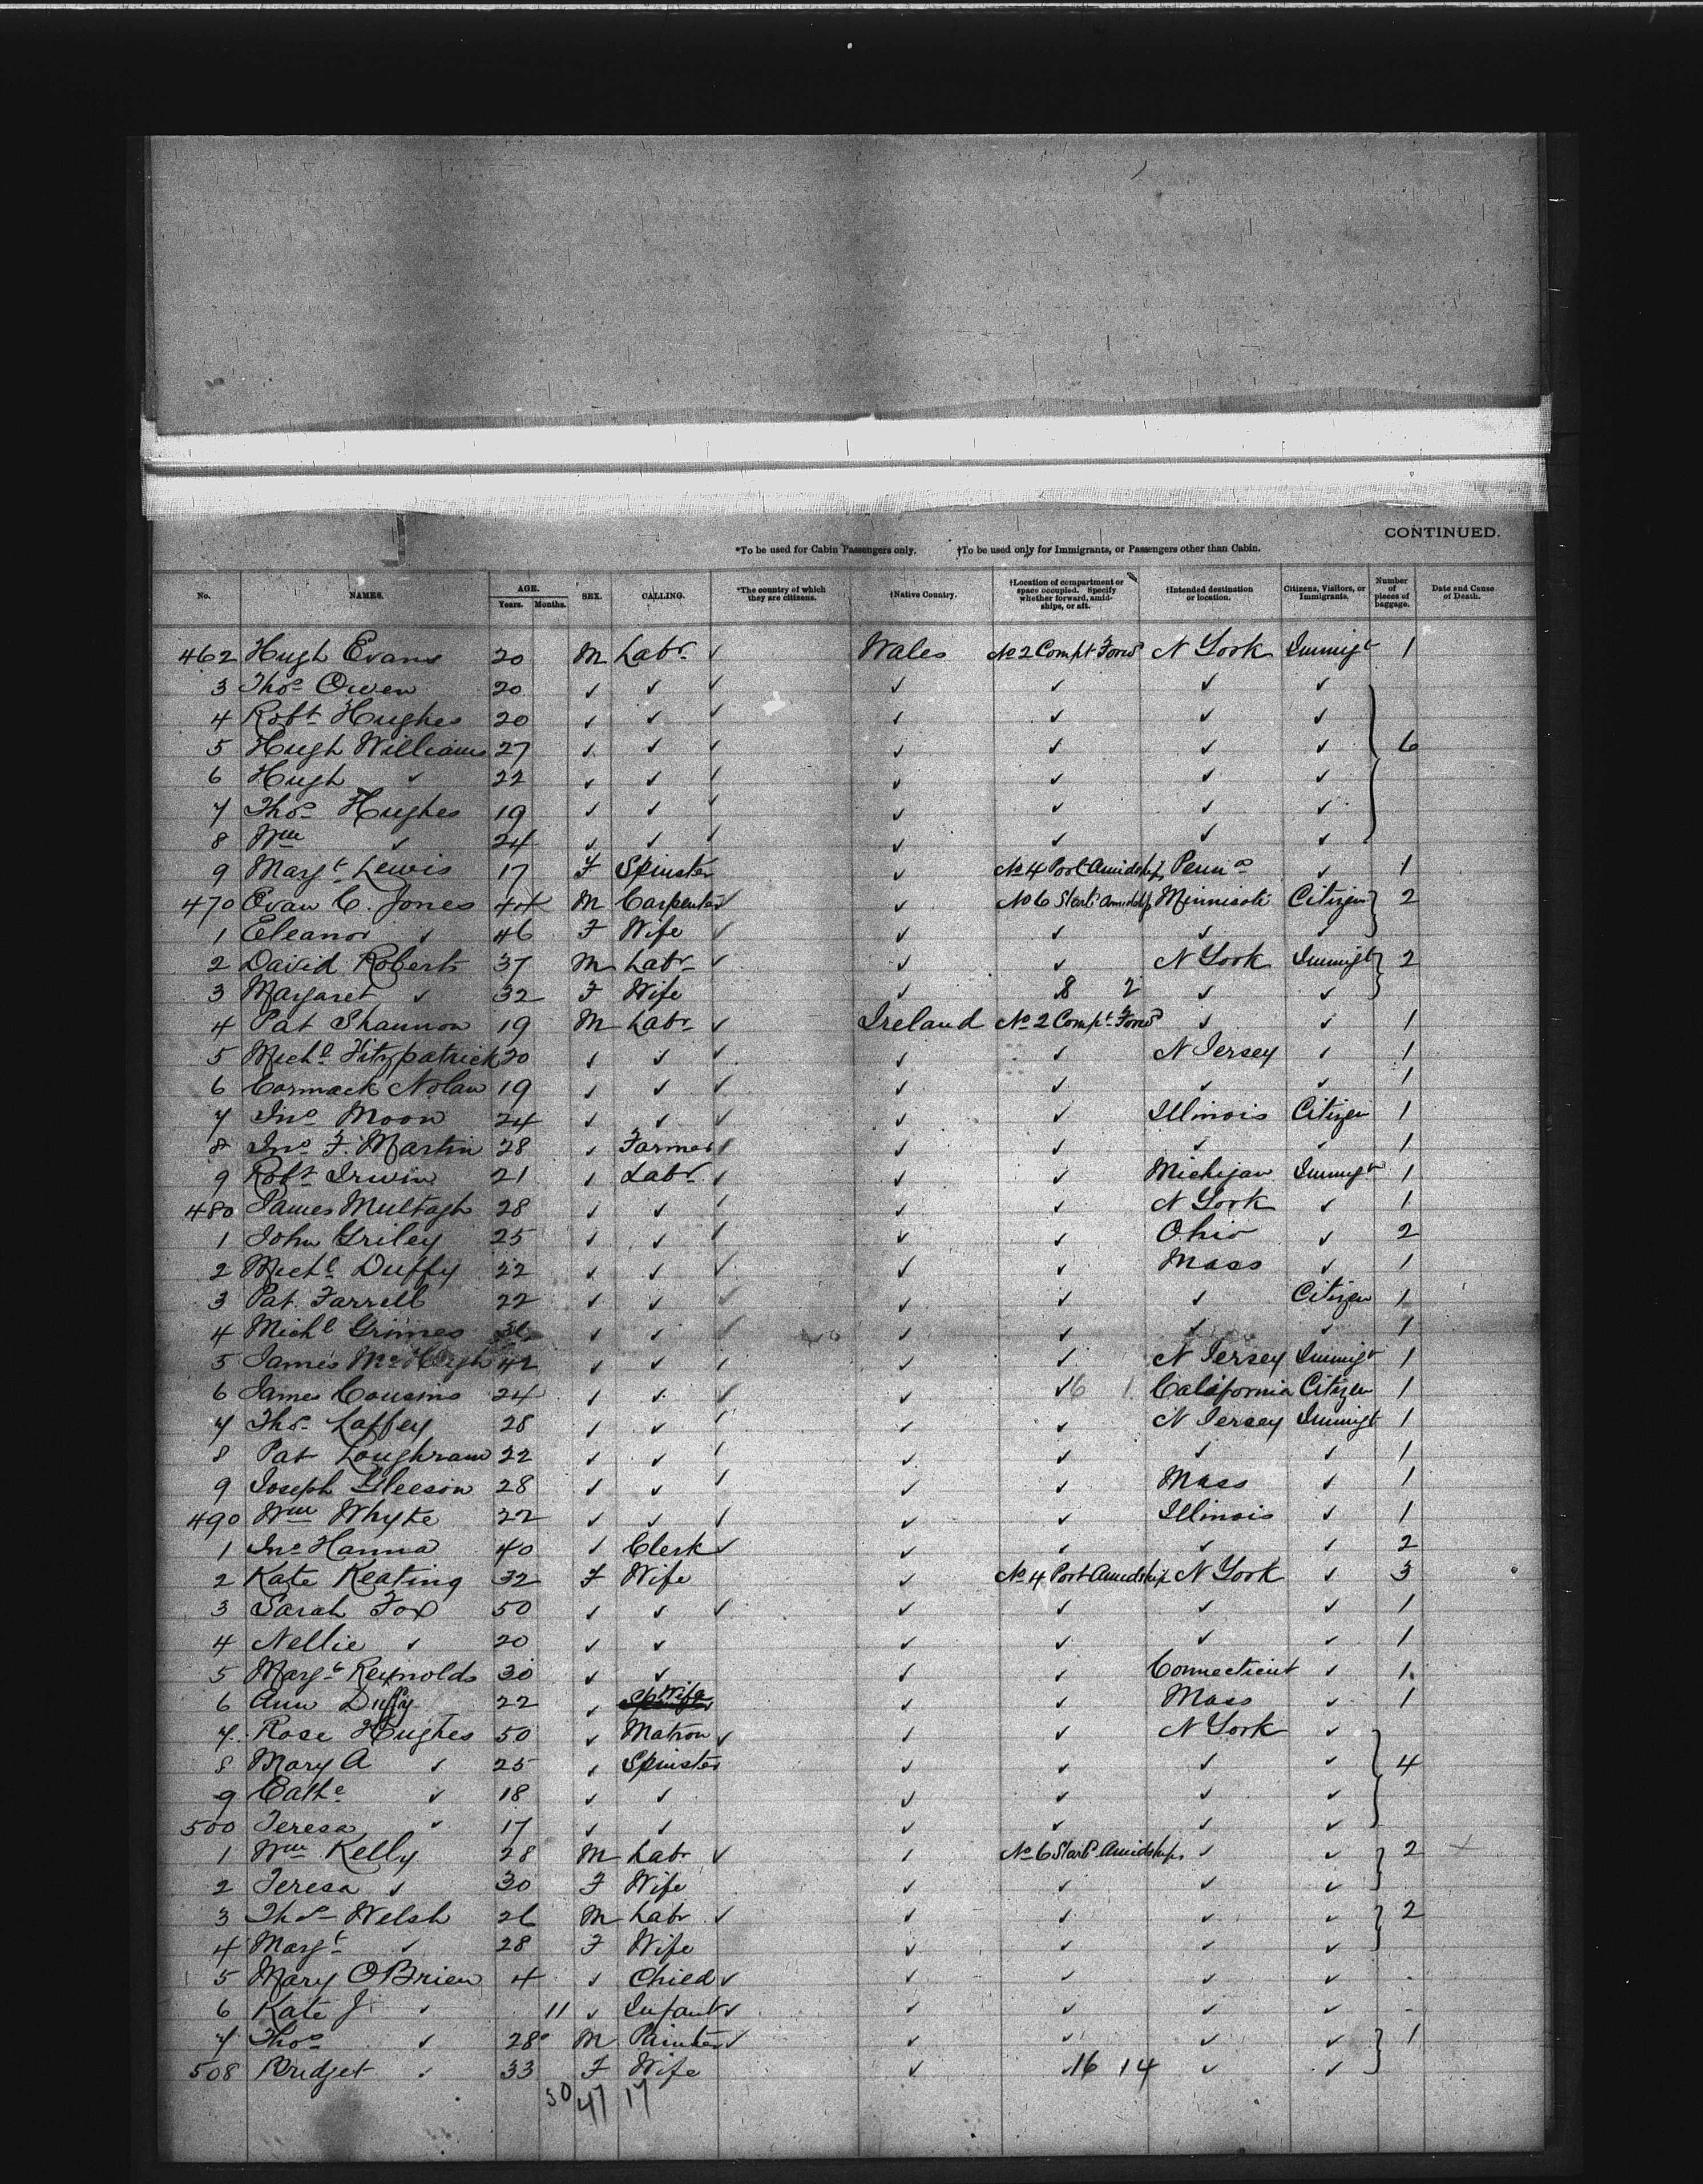 CONTINUED.
*To be used for Cabin Passengers only. †To be used only for Immigrants, or Passengers other than Cabin.
No. NAMES. AGE. Years. Months. SEX. CALLING. *The country of which they are citizens. †Native Country. †Location of compartment or space occupied. Specify whether forward, amidships, or aft. †Intended destination or location. Citizens, Visitors, or Immigrants. Number of pieces of baggage. Date and Cause of Death.
462 Hugh Evans 20 M Labr ✓ Wales No 2 Compt Forwd N York Immigt 1
3 Thos Owen 20 ✓ ✓ ✓ ✓ ✓ ✓ ✓
4 Robt Hughes 20 ✓ ✓ ✓ ✓ ✓ ✓ ✓
5 Hugh Williams 27 ✓ ✓ ✓ ✓ ✓ ✓ ✓ 6
6 Hugh ✓ 22 ✓ ✓ ✓ ✓ ✓ ✓ ✓
7 Thos Hughes 19 ✓ ✓ ✓ ✓ ✓ ✓ ✓
8 Wm ✓ 24 ✓ ✓ ✓ ✓ ✓ ✓ ✓
9 Margt Lewis 17 F Spinster ✓ No 4 Port Amidship Penna ✓ 1
470 Evan C. Jones 44 M Carpenter ✓ ✓ No 6 Starbd Amidship Minnisoti Citizen 2
1 Eleanor ✓ 46 F Wife ✓ ✓ ✓ ✓ ✓
2 David Roberts 37 M Labr ✓ ✓ ✓ N York Immigt 2
3 Margaret ✓ 32 F Wife ✓ 8 2 ✓ ✓
4 Pat Shannon 19 M Labr ✓ Ireland No 2 Compt Forwd ✓ ✓ 1
5 Michl Fitzpatrick 20 ✓ ✓ ✓ ✓ ✓ N Jersey ✓ 1
6 Cormack Nolan 19 ✓ ✓ ✓ ✓ ✓ ✓ ✓ 1
7 Jno Moon 24 ✓ ✓ ✓ ✓ ✓ Illinois Citizen 1
8 Jno F. Martin 28 ✓ Farmer ✓ ✓ ✓ ✓ ✓ 1
9 Robt Irwin 21 ✓ Labr ✓ ✓ ✓ Michigan Immigt 1
480 James Multagh 28 ✓ ✓ ✓ ✓ ✓ N York ✓ 1
1 John Griley 25 ✓ ✓ ✓ ✓ ✓ Ohio ✓ 2
2 Michl Duffy 22 ✓ ✓ ✓ ✓ ✓ Mass ✓ 1
3 Pat Farrell 22 ✓ ✓ ✓ ✓ ✓ ✓ Citizen 1
4 Michl Grimes ✓ ✓ ✓ ✓ ✓ ✓ ✓ 1
5 James McHugh 42 ✓ ✓ ✓ ✓ ✓ N Jersey Immigt 1
6 James Cousins 24 ✓ ✓ ✓ ✓ ✓ 6 1 California Citizen 1
7 Thos Laffey 28 ✓ ✓ ✓ ✓ ✓ N Jersey Immigt 1
8 Pat Loughram 22 ✓ ✓ ✓ ✓ ✓ ✓ ✓ 1
9 Joseph Gleeson 28 ✓ ✓ ✓ ✓ ✓ Mass ✓ 1
490 Wm Whyte 22 ✓ ✓ ✓ ✓ ✓ Illinois ✓ 1
1 Jno Hanna 40 ✓ Clerk ✓ ✓ ✓ ✓ ✓ 2
2 Kate Keating 32 F Wife ✓ No 4 Port Amidship N York ✓ 3
3 Sarah Fox 50 ✓ ✓ ✓ ✓ ✓ ✓ ✓ 1
4 Nellie ✓ 20 ✓ ✓ ✓ ✓ ✓ ✓ 1
5 Margt Reynolds 30 ✓ ✓ ✓ ✓ Connecticut ✓ 1
6 Ann Duffy 22 ✓ Wife ✓ ✓ Mass ✓ 1
7 Rose Hughes 50 ✓ Matron ✓ ✓ ✓ N York ✓
8 Mary A ✓ 25 ✓ Spinster ✓ ✓ ✓ ✓ 4
9 Cathe ✓ 18 ✓ ✓ ✓ ✓ ✓ ✓
500 Teresa ✓ 17 ✓ ✓ ✓ ✓ ✓ ✓
1 Wm Kelly 28 M Labr ✓ ✓ No 6 Starbd Amidships ✓ ✓ 2
2 Teresa ✓ 30 F Wife ✓ ✓ ✓ ✓
3 Thos Welsh 26 M Labr ✓ ✓ ✓ ✓ ✓ 2
4 Margt ✓ 28 F Wife ✓ ✓ ✓ ✓
5 Mary O'Brien 4 ✓ Child ✓ ✓ ✓ ✓ ✓
6 Kate J. ✓ 11 ✓ Infant ✓ ✓ ✓ ✓ ✓
7 Thos ✓ 28 M Painter ✓ ✓ ✓ ✓ ✓ 1
508 Bridget ✓ 33 F Wife ✓ 16 14 ✓ ✓
30 47 17